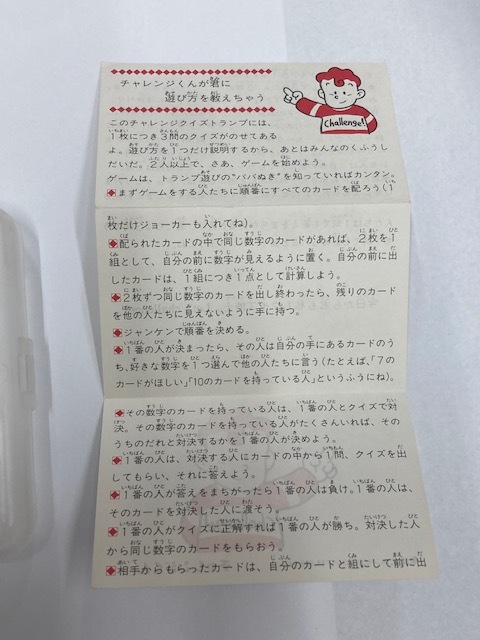 チャレンジくんが君に
遊び方を教えちゃう
Challenge!
このチャレンジクイズトランプには、
1枚につき3問のクイズがのせてある
よ。遊び方を1つだけ説明するから、あとはみんなのくふうし
だいだ。2人以上で、さあ、ゲームを始めよう。
ゲームは、トランプ遊びの"ババぬき"を知っていればカンタン。
◆まずゲームをする人たちに順番にすべてのカードを配ろう(1
枚だけジョーカーも入れてね)。
◆配られたカードの中で同じ数字のカードがあれば、2枚を1
組として、自分の前に数字が見えるように置く。自分の前に出
したカードは、1組につき1点として計算しよう。
◆2枚ずつ同じ数字のカードを出し終わったら、残りのカード
を他の人たちに見えないように手に持つ。
◆ジャンケンで順番を決める。
◆1番の人が決まったら、その人は自分の手にあるカードのう
ち、好きな数字を1つ選んで他の人たちに言う(たとえば、「7の
カードがほしい」「10のカードを持っている人」というふうにね)。
◆その数字のカードを持っている人は、1番の人とクイズで対
決。その数字のカードを持っている人がたくさんいれば、その
うちのだれと対決するかを1番の人が決めよう。
◆1番の人は、対決する人にカードの中から1問、クイズを出
してもらい、それに答えよう。
◆1番の人が答えをまちがったら1番の人は負け。1番の人は、
そのカードを対決した人に渡そう。
◆1番の人がクイズに正解すれば1番の人が勝ち。対決した人
から同じ数字のカードをもらおう。
◆相手からもらったカードは、自分のカードと組にして前に出